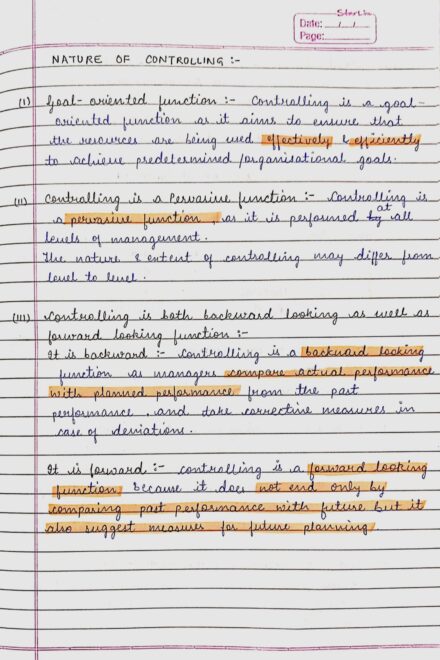 Date: / /
Page:
NATURE OF CONTROLLING :-
(I) Goal-oriented function :- Controlling is a goal-
oriented function as it aims to ensure that
the resources are being used effectively & efficiently
to achieve predetermined /organisational goals.
(II) Controlling is a Pervasive function :- Controlling is
a pervasive function, as it is performed at all
levels of management.
The nature & extent of controlling may differ from
level to level.
(III) Controlling is both backward looking as well as
forward looking function :-
It is backward :- Controlling is a backward looking
function as managers compare actual performance
with planned performance from the past
performance and take corrective measures in
case of deviations.
It is forward :- controlling is a forward looking
function because it does not end only by
comparing past performance with future but it
also suggest measures for future planning.